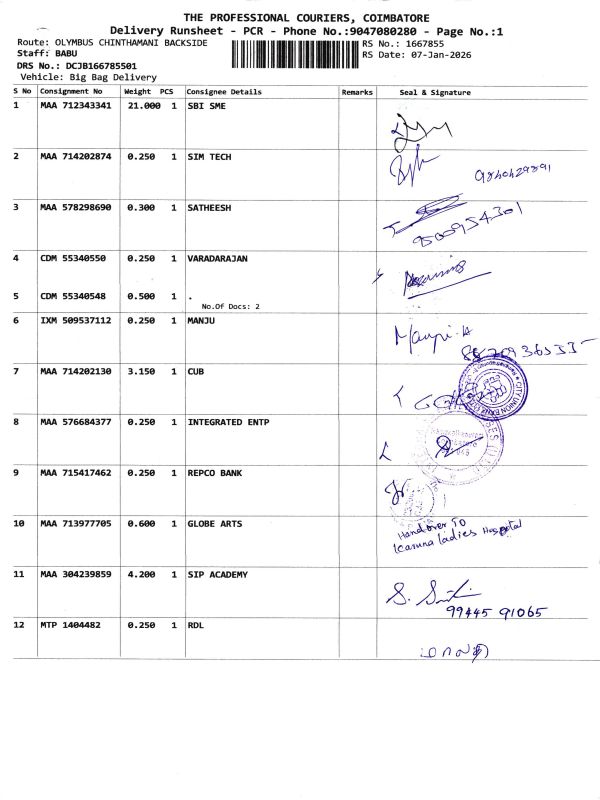 THE PROFESSIONAL COURIERS, COIMBATORE
Delivery Runsheet - PCR - Phone No.:9047080280 - Page No.:1
Route: OLYMBUS CHINTHAMANI BACKSIDE RS No.: 1667855
Staff: BABU RS Date: 07-Jan-2026
DRS No.: DCJB166785501
Vehicle: Big Bag Delivery
S No Consignment No Weight PCS Consignee Details Remarks Seal & Signature
1 MAA 712343341 21.000 1 SBI SME
2 MAA 714202874 0.250 1 SIM TECH
3 MAA 578298690 0.300 1 SATHEESH
9500954301
4 CDM 55340550 0.250 1 VARADARAJAN
5 CDM 55340548 0.500 1 .
No.Of Docs: 2
6 IXM 509537112 0.250 1 MANJU
7 MAA 714202130 3.150 1 CUB
CITY UNION BANK
8 MAA 576684377 0.250 1 INTEGRATED ENTP
9 MAA 715417462 0.250 1 REPCO BANK
10 MAA 713977705 0.600 1 GLOBE ARTS
Handover To
Icaruna ladies Hospital
11 MAA 304239859 4.200 1 SIP ACADEMY
99445 91065
12 MTP 1404482 0.250 1 RDL